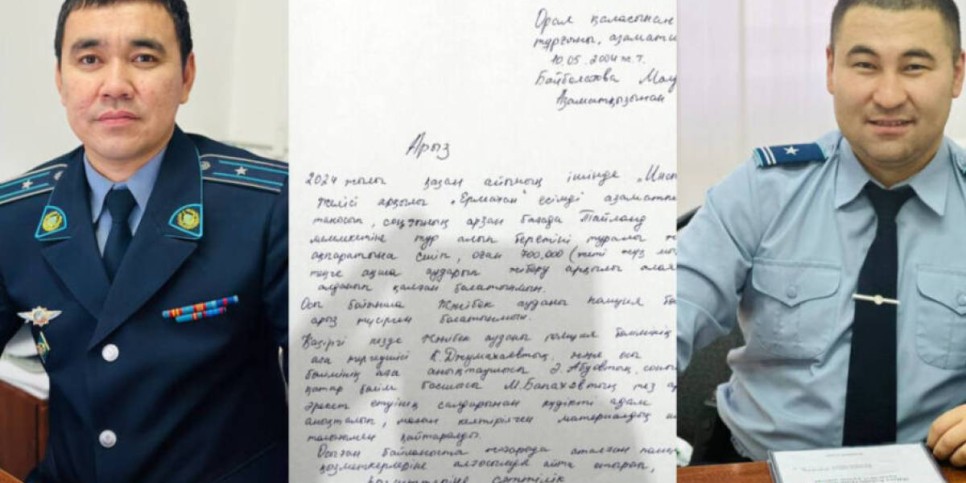 Орал қаласының
тұрғыны, азаматы
10.05.2004 ж.т.
Байболатова
Азаматқызынан
Арыз
2024 жылы қазан айының ішінде "Инст
желісі арқылы "Ермахан" есімді азаматпен
танысып, арзан бағада Тайланд
мемлекетіне тур алып беретіні туралы
ақпаратына сеніп, оған 700,000 (жеті жүз мың
теңге ақша аударып жіберу арқылы алая
алданып қалған болатынмын.
Осы бойынша Жәнібек ауданы полиция бө
арыз түсірген болатынмын.
Қазіргі кезде Жәнібек ауданы полиция бөлімінің
аға тергеушісі К.Джумахаевтың, және осы
бөлімнің аға анықтаушысы Ә.Абуовтың, соны
қатар бөлім басшысы М.Балаховтың тез ар
әрекет етуінің салдарынан күдікті адам
анықталып, маған келтірілген материалдық
толығымен қайтарылды.
Осыған байланысты жоғарыда аталған поли
қызметкерлеріне алғысымды айта отырып,
қызметтеріне сәттілік